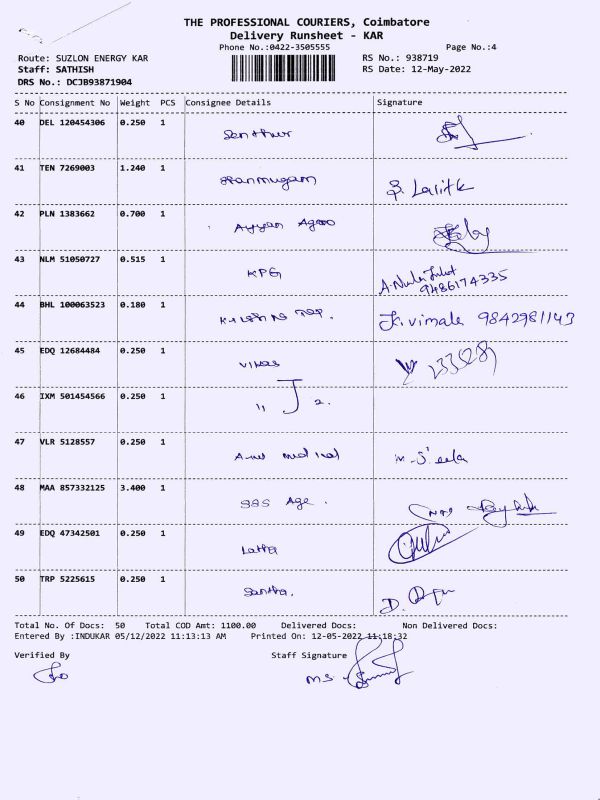 THE PROFESSIONAL COURIERS, Coimbatore
Delivery Runsheet - KAR
Phone No.:0422-3505555 Page No.:4
Route: SUZLON ENERGY KAR RS No.: 938719
Staff: SATHISH RS Date: 12-May-2022
DRS No.: DCJB93871904
S No Consignment No Weight PCS Consignee Details Signature
40 DEL 120454306 0.250 1 Senthur
41 TEN 7269003 1.240 1 Shanmugam S. Lalitk
42 PLN 1383662 0.700 1 Ayyan Agro
43 NLM 51050727 0.515 1 KPG
9486174335
44 BHL 100063523 0.180 1 K. Vimala 9842981143
45 EDQ 12684484 0.250 1 vikas
46 IXM 501454566 0.250 1 " J 2.
47 VLR 5128557 0.250 1 medical
48 MAA 857332125 3.400 1 SBS Age.
49 EDQ 47342501 0.250 1 Latha
50 TRP 5225615 0.250 1 Santha. D.
Total No. Of Docs: 50 Total COD Amt: 1100.00 Delivered Docs: Non Delivered Docs:
Entered By :INDUKAR 05/12/2022 11:13:13 AM Printed On: 12-05-2022 11:18:32
Verified By Staff Signature
MS